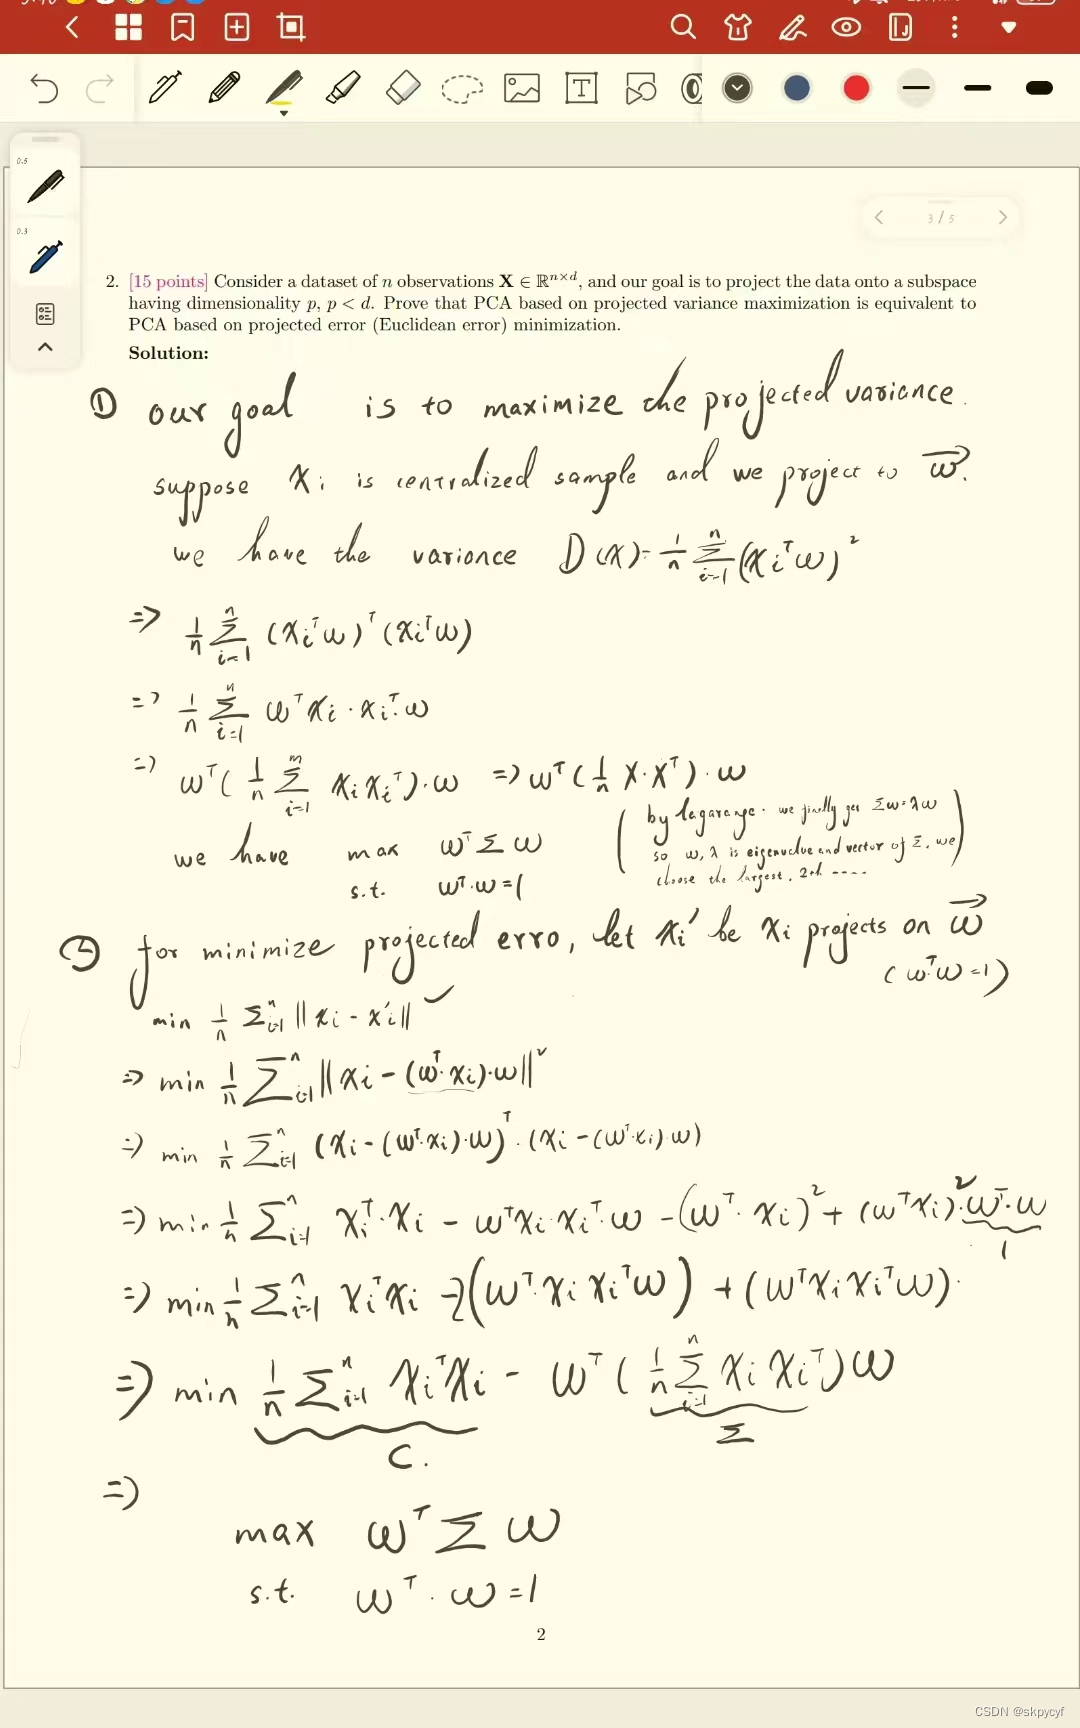 0.5
0.3
3 / 5
2. [15 points] Consider a dataset of n observations X ∈ ℝⁿˣᵈ, and our goal is to project the data onto a subspace
having dimensionality p, p < d. Prove that PCA based on projected variance maximization is equivalent to
PCA based on projected error (Euclidean error) minimization.
Solution:
① our goal is to maximize the projected variance.
suppose xᵢ is centralized sample and we project to w⃗.
we have the variance D(x) = 1/n Σᵢ₌₁ⁿ (xᵢᵀw)²
=> 1/n Σᵢ₌₁ⁿ (xᵢᵀw)ᵀ(xᵢᵀw)
=> 1/n Σᵢ₌₁ⁿ wᵀxᵢ · xᵢᵀ·w
=> wᵀ( 1/n Σᵢ₌₁ᵐ xᵢxᵢᵀ)·w => wᵀ( 1/n X·Xᵀ)·w
we have max wᵀΣw
s.t. wᵀ·w=1
(by lagarange. we finally get Σw=λw
so w, λ is eigenvalue and vector of Σ, we
choose the largest, 2th ----)
for minimize projected erro, let xᵢ' be xᵢ projects on w⃗
(wᵀw=1)
min 1/n Σᵢ₌₁ⁿ ||xᵢ - x'ᵢ||
=> min 1/n Σᵢ₌₁ⁿ ||xᵢ - (wᵀ·xᵢ)·w||²
=> min 1/n Σᵢ₌₁ⁿ (xᵢ-(wᵀ·xᵢ)·w)ᵀ·(xᵢ-(wᵀ·xᵢ)·w)
=> min 1/n Σᵢ₌₁ⁿ xᵢᵀ·xᵢ - wᵀxᵢ·xᵢᵀ·w -(wᵀ·xᵢ)² + (wᵀxᵢ)²·wᵀ·w
1
=> min 1/n Σᵢ₌₁ⁿ xᵢᵀxᵢ -2(wᵀ·xᵢxᵢᵀw) + (wᵀxᵢxᵢᵀw)
=> min 1/n Σᵢ₌₁ⁿ xᵢᵀxᵢ - wᵀ( 1/n Σᵢ₌₁ⁿ xᵢxᵢᵀ)w
C. Σ
=>
max wᵀΣw
s.t. wᵀ·w=1
2
CSDN @skpycyf